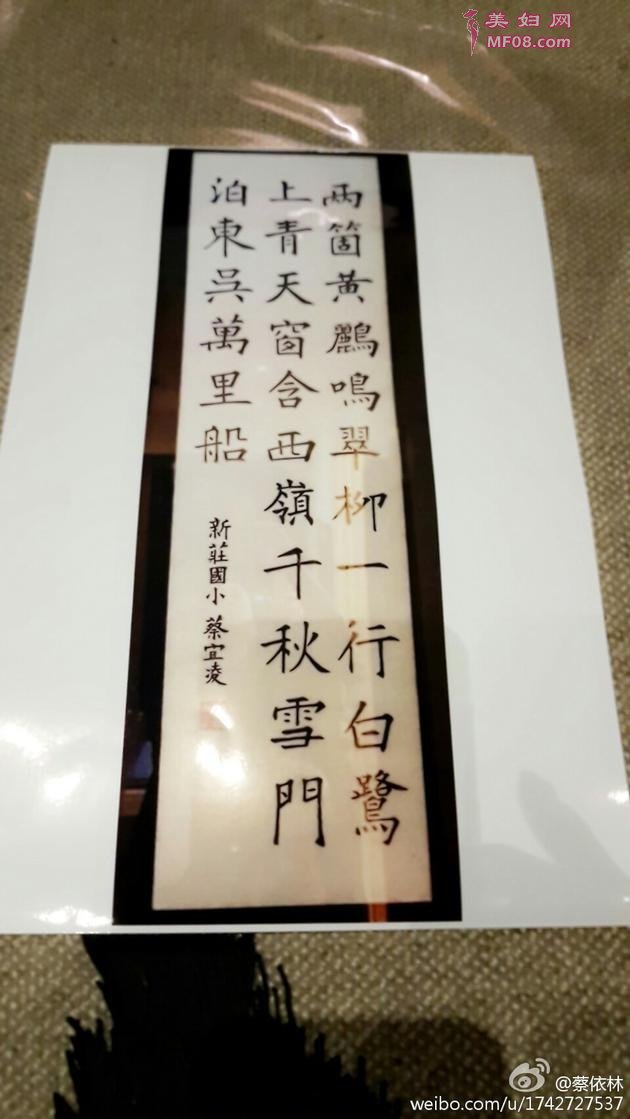 美妇网
MF08.com
兩箇黃鸝鳴翠柳一行白鷺
上青天窗含西嶺千秋雪門
泊東吳萬里船
新莊國小 蔡宜凌
@蔡依林
weibo.com/u/1742727537